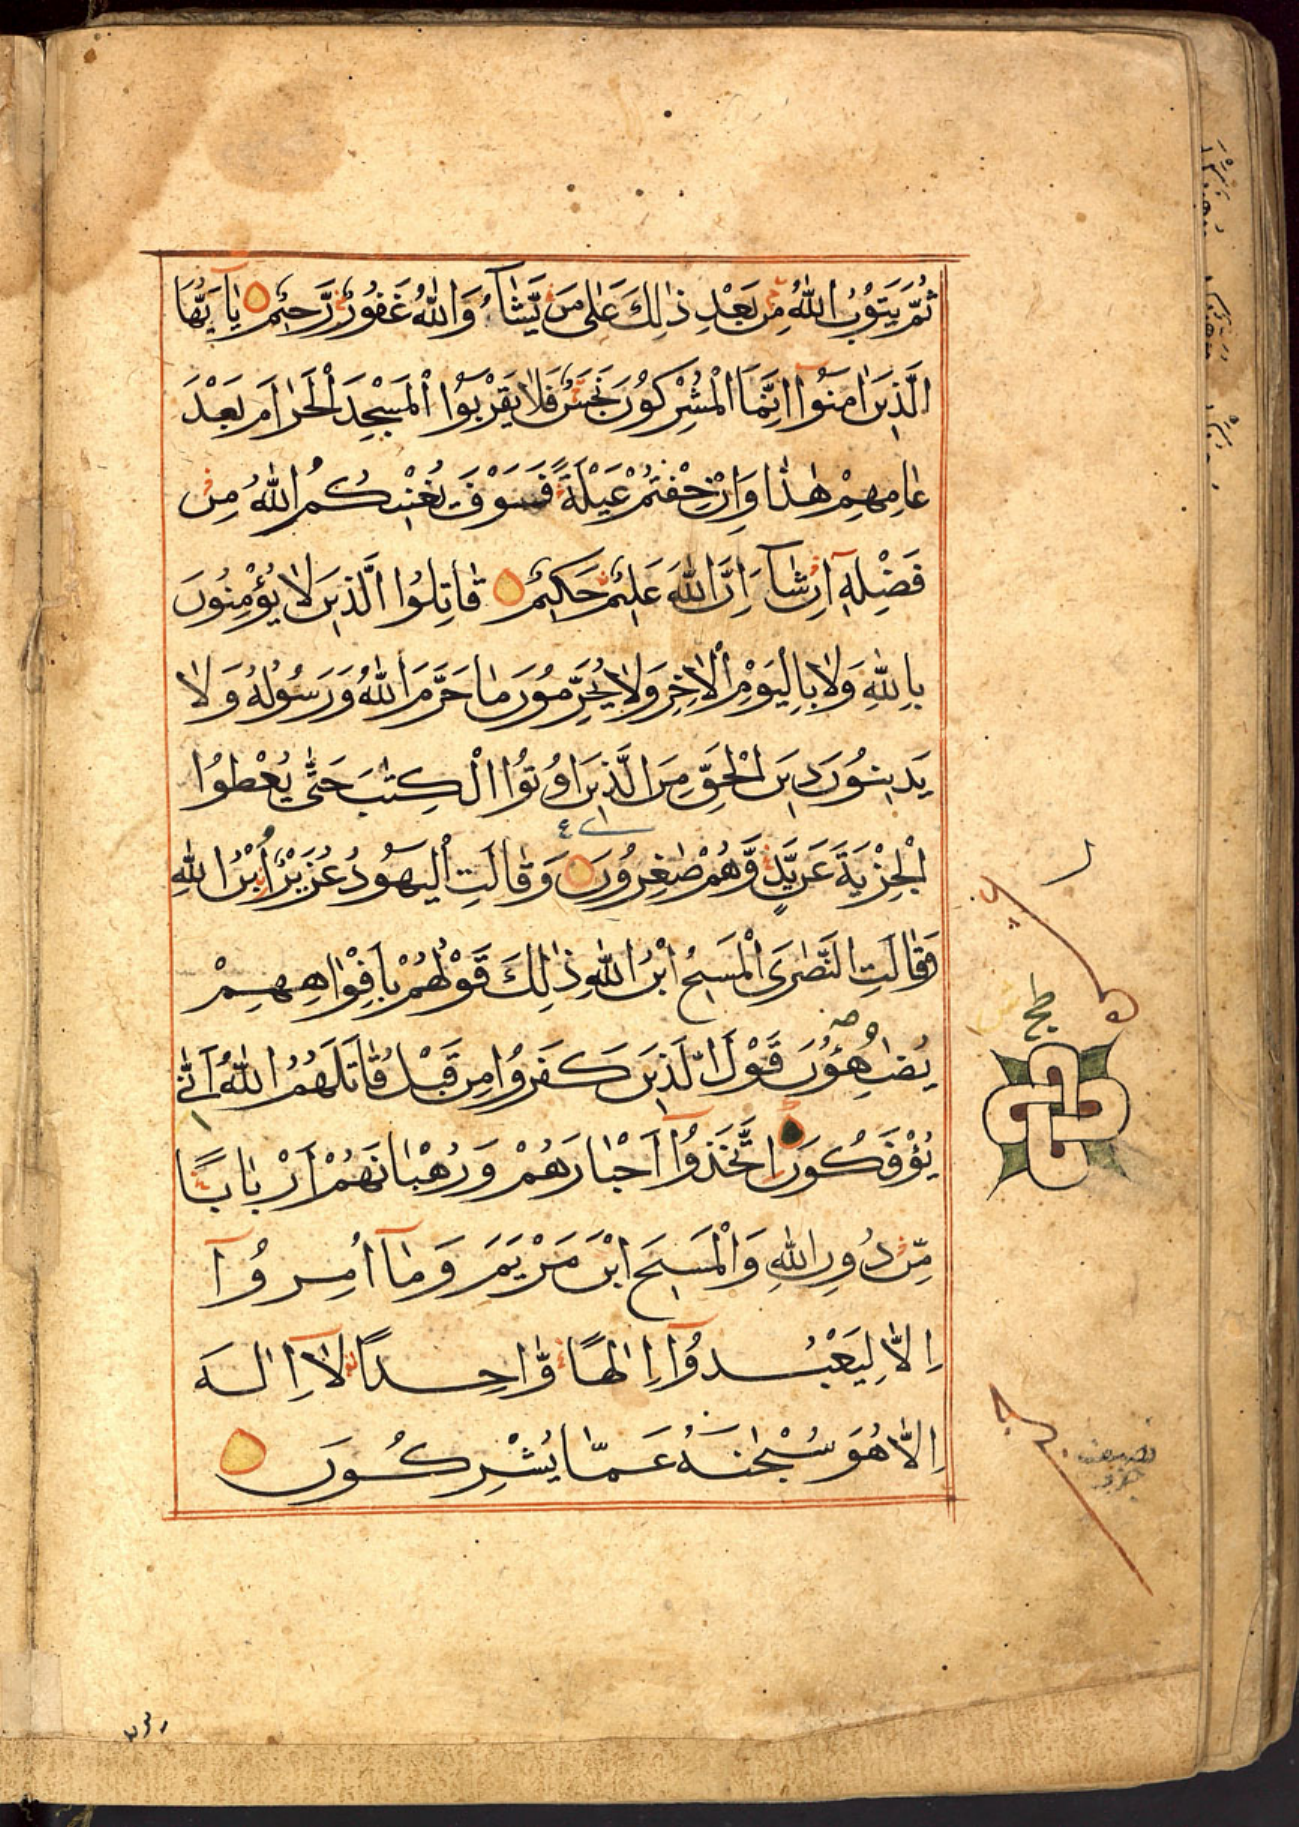 ثُمَّ يَتُوْبُ اللّٰهُ مِنْ بَعْدِ ذٰلِكَ عَلٰى مَنْ يَّشَآءُ وَاللّٰهُ غَفُوْرٌ رَّحِيْمٌ يٰآ يُّهَا
الَّذِيْنَ اٰمَنُوْآ اِنَّمَا الْمُشْرِكُوْنَ نَجَسٌ فَلَا يَقْرَبُوا الْمَسْجِدَ الْحَرَامَ بَعْدَ
عَامِهِمْ هٰذَا وَاِنْ خِفْتُمْ عَيْلَةً فَسَوْفَ يُغْنِيْكُمُ اللّٰهُ مِنْ
فَضْلِهٖٓ اِنْ شَآءَ اِنَّ اللّٰهَ عَلِيْمٌ حَكِيْمٌ قَاتِلُوا الَّذِيْنَ لَا يُؤْمِنُوْنَ
بِاللّٰهِ وَلَا بِالْيَوْمِ الْاٰخِرِ وَلَا يُحَرِّمُوْنَ مَا حَرَّمَ اللّٰهُ وَرَسُوْلُهٗ وَلَا
يَدِيْنُوْنَ دِيْنَ الْحَقِّ مِنَ الَّذِيْنَ اُوْتُوا الْكِتٰبَ حَتّٰى يُعْطُوا
الْجِزْيَةَ عَنْ يَّدٍ وَّهُمْ صٰغِرُوْنَ وَقَالَتِ الْيَهُوْدُ عُزَيْرُ نِ ابْنُ اللّٰهِ
وَقَالَتِ النَّصٰرَى الْمَسِيْحُ ابْنُ اللّٰهِ ذٰلِكَ قَوْلُهُمْ بِاَفْوَاهِهِمْ
يُضَاهِؤُنَ قَوْلَ الَّذِيْنَ كَفَرُوْا مِنْ قَبْلُ قَاتَلَهُمُ اللّٰهُ اَنّٰى
يُؤْفَكُوْنَ اِتَّخَذُوْآ اَحْبَارَهُمْ وَرُهْبَانَهُمْ اَرْبَابًا
مِّنْ دُوْنِ اللّٰهِ وَالْمَسِيْحَ ابْنَ مَرْيَمَ وَمَآ اُمِرُوْآ
اِلَّا لِيَعْبُدُوْآ اِلٰهًا وَّاحِدًا لَآ اِلٰهَ
اِلَّا هُوَ سُبْحٰنَهٗ عَمَّا يُشْرِكُوْنَ